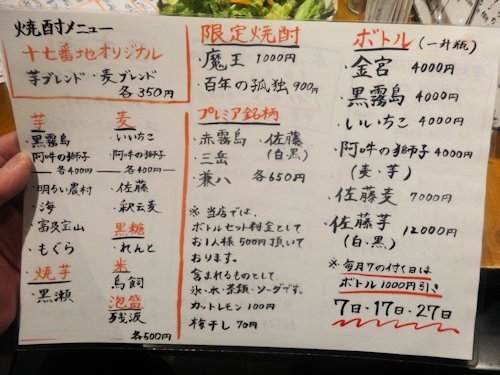 焼酎メニュー
十七番地オリジナル
芋ブレンド・麦ブレンド
各350円
芋
・黒霧島
・阿吽の獅子
各400円
・明るい農村
・海
・富及宝山
・もぐら
焼芋
・黒瀬
麦
・いいちこ
・阿吽の獅子
各400円
・佐藤
・釈云麦
黒糖
・れんと
米
鳥飼
泡盛
残波
各500円
限定焼酎
・魔王 1000円
・百年の孤独 900円
プレミア銘柄
・赤霧島 ・佐藤
・三岳 (白・黒)
・兼八 各650円
※当店では、
ボトルセット料金として
お1人様500円頂いて
おります。
含まれるものとして、
氷・水・茶類・ソーダです。
カットレモン100円
梅干し70円
ボトル(一升瓶)
・金宮 4000円
・黒霧島 4000円
・いいちこ 4000円
・阿吽の獅子 4000円
(麦・芋)
・佐藤麦 7000円
・佐藤芋 12000円
(白・黒)
※毎月7の付く日は
ボトル1000円引き
7日・17日・27日